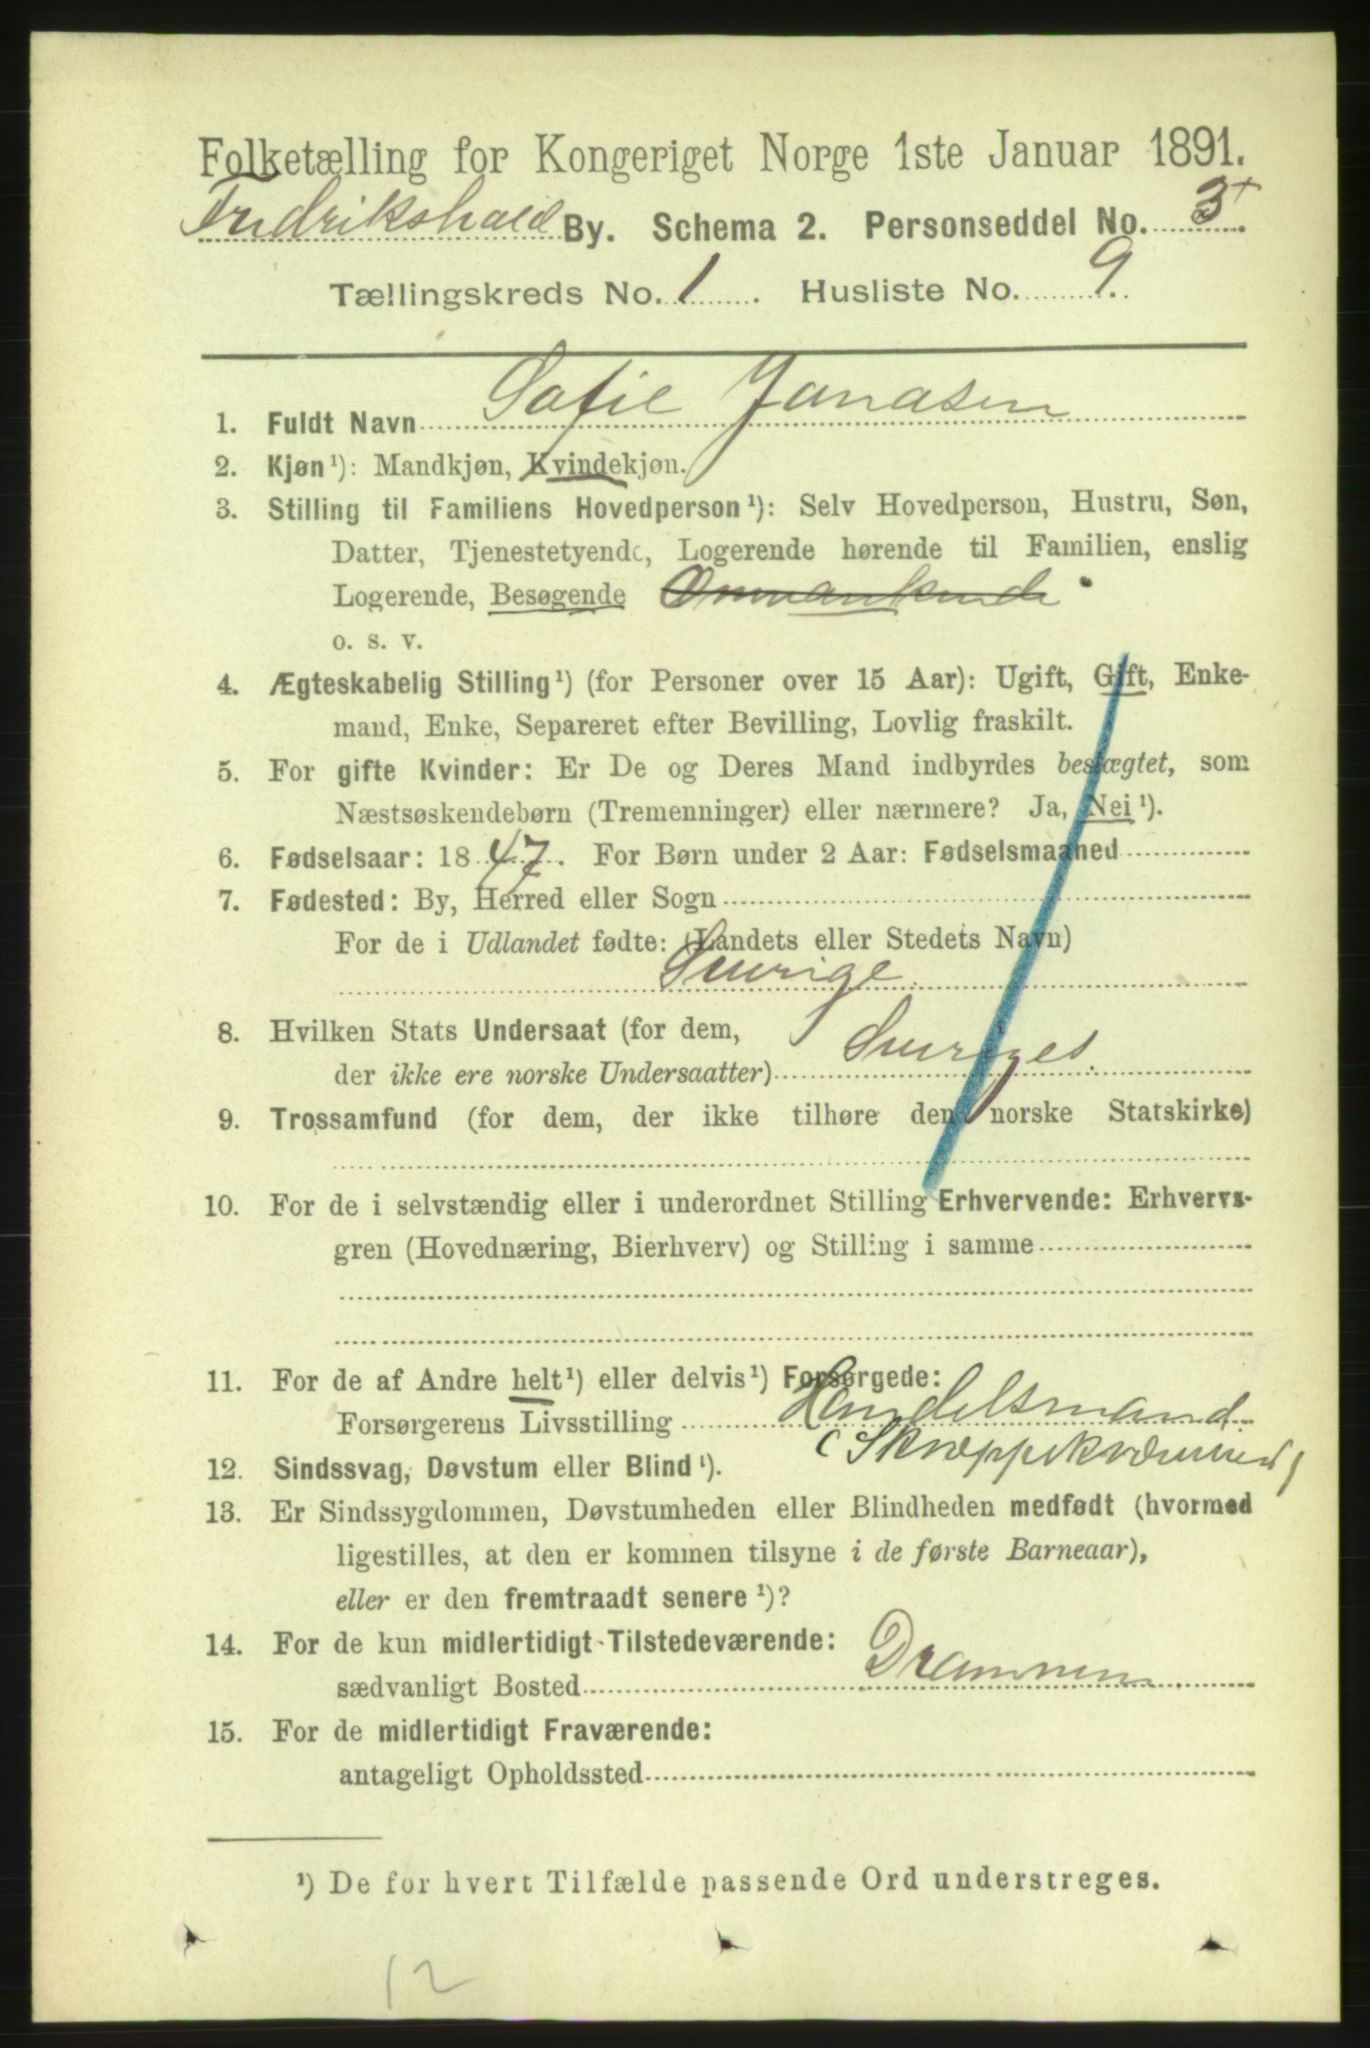 Folketælling for Kongeriget Norge 1ste Januar 1891.
Fredrikshald By. Schema 2. Personseddel No. 3+
Tællingskreds No. 1. Husliste No. 9.
1. Fuldt Navn Sofie Janasen
2. Kjøn¹): Mandkjøn, Kvindekjøn.
3. Stilling til Familiens Hovedperson¹): Selv Hovedperson, Hustru, Søn,
Datter, Tjenestetyende, Logerende hørende til Familien, enslig
Logerende, Besøgende
o. s. v.
4. Ægteskabelig Stilling¹) (for Personer over 15 Aar): Ugift, Gift, Enke-
mand, Enke, Separeret efter Bevilling, Lovlig fraskilt.
5. For gifte Kvinder: Er De og Deres Mand indbyrdes beslægtet, som
Næstsøskendebørn (Tremenninger) eller nærmere? Ja, Nei¹).
6. Fødselsaar: 1847. For Børn under 2 Aar: Fødselsmaaned
7. Fødested: By, Herred eller Sogn
For de i Udlandet fødte: (Landets eller Stedets Navn)
Sverige.
8. Hvilken Stats Undersaat (for dem,
der ikke ere norske Undersaatter) Sveriges.
9. Trossamfund (for dem, der ikke tilhøre den norske Statskirke)
10. For de i selvstændig eller i underordnet Stilling Erhvervende: Erhvervs-
gren (Hovednæring, Bierhverv) og Stilling i samme
11. For de af Andre helt¹) eller delvis¹) Forsørgede:
Forsørgerens Livsstilling Handelsmand
(Skræppekræmmer)
12. Sindssvag, Døvstum eller Blind¹).
13. Er Sindssygdommen, Døvstumheden eller Blindheden medfødt (hvormed
ligestilles, at den er kommen tilsyne i de første Barneaar),
eller er den fremtraadt senere¹)?
14. For de kun midlertidigt Tilstedeværende:
sædvanligt Bosted Drammen
15. For de midlertidigt Fraværende:
antageligt Opholdssted
¹) De for hvert Tilfælde passende Ord understreges.
12